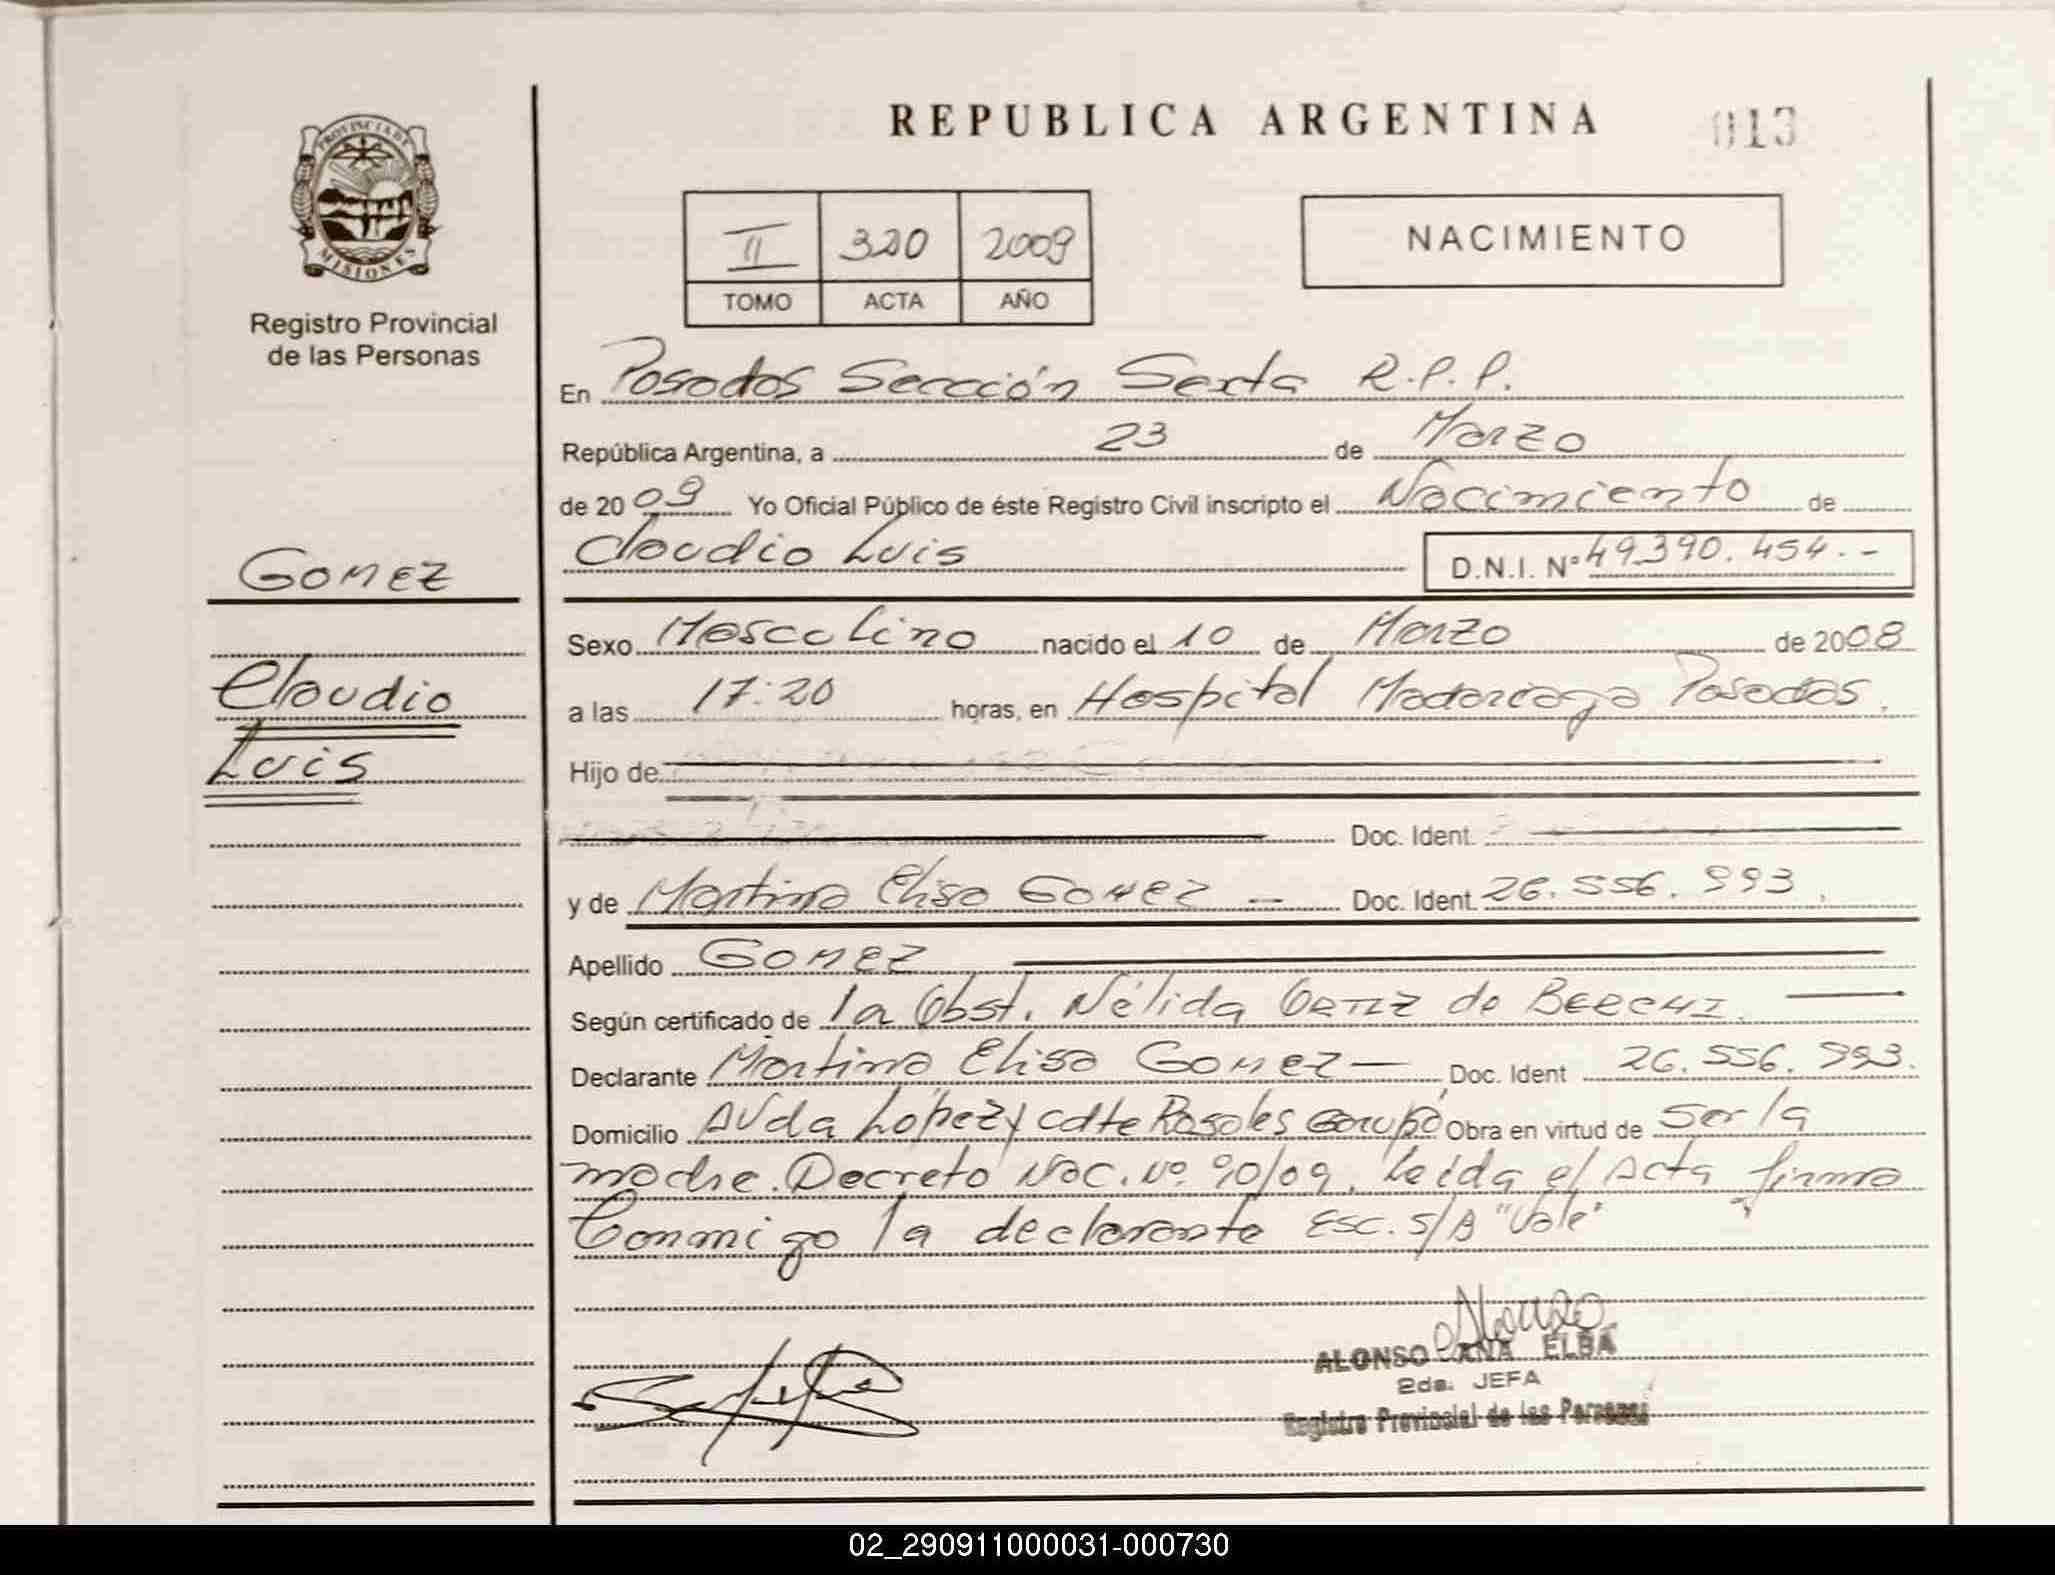 PROVINCIA DE
MISIONES
Registro Provincial
de las Personas
REPUBLICA ARGENTINA
013
II 320 2009
TOMO ACTA AÑO
NACIMIENTO
En Posadas Sección Sexta R.P.P.
República Argentina, a 23 de Marzo
de 2009 Yo Oficial Público de éste Registro Civil inscripto el Nacimiento de
Claudio Luis D.N.I. Nº 49.390.454.-
GOMEZ
Claudio
Luis
Sexo Masculino nacido el 10 de Marzo de 2008
a las 17:20 horas, en Hospital Madariaga Posadas.
Hijo de
Doc. Ident.
y de Martina Elisa GOMEZ — Doc. Ident. 26.556.993.
Apellido GOMEZ
Según certificado de la Obst. Nélida ORTIZ de
Declarante Martina Elisa GOMEZ — Doc. Ident 26.556.993.
Domicilio Avda López y Cdte Rosales Obra en virtud de Ser la
madre. Decreto Nac. Nº 90/09. Leída el Acta firma
Conmigo la declarante Esc. S/B "Vale"
ALONSO ANA ELBA
2da. JEFA
Registro Provincial de las Personas
02_290911000031-000730